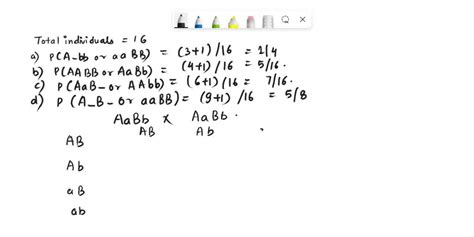 Total individuals = 16
a) P(A-bb or aaBB) = (3+1)/16 = 1/4
b) P(AABB or AaBb) = (4+1)/16 = 5/16.
c) P(AaB- or AAbb) = (6+1)/16 = 7/16.
d) P(A_B- or aaBB) = (9+1)/16 = 5/8
AaBb x AaBb.
AB Ab
AB
Ab
aB
ab